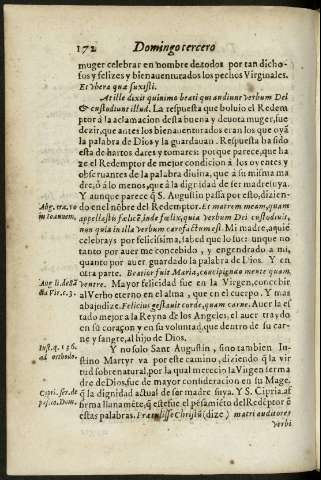 172 Domingo tercero
muger celebrar en nombre de todos por tan dicho-
sos y felizes y bienauenturados los pechos Virginales.
Et vbera quæ suxisti.
At ille dixit quinimo beati qui audiunt verbum Dei
& custodiunt illud. La respuesta que boluio el Redem
ptor à la aclamacion desta buena y deuota muger, fue
dezir, que antes los bienauenturados eran los que oyã
la palabra de Dios y la guardauan. Respuesta ha sido
esta de hartos dares y tomares: porque parece, que ha
ze el Redemptor de mejor condicion à los oyentes y
obseruantes de la palabra diuina, que à su misma ma
dre, ò à lo menos, que à la dignidad de ser madre suya.
Y aunque parece q̃ S. Augustin passa por esto, dizien-
Aug. tra. 10
in Ioannem.
do en el nõbre del Redemptor. Et matrem meam, quam
appellastis fœlicẽ, inde fœlix, quia verbum Dei custodiuit,
non quia in illa verbum caro factum est. Mi madre, aquiẽ
celebrays por felicissima, sabed que lo fue: no
tanto por auer me concebido, y engendrado a mi,
quanto por auer guardado la palabra de Dios. Y en
otra parte. Beatior fuit Maria, concipiendo mente quam,
Aug. li. de sã
cta Vir. c. 3.
ventre. Mayor felicidad fue en la Virgen, concebir
al Verbo eterno en el alma, que en el cuerpo. Y mas
abajo dize. Felicius gestauit corde, quam carne. Auer la es
tado mejor a la Reyna de los Angeles, el auer traydo
en su coraçon y en su voluntad, que dentro de su car-
ne y sangre, al hijo de Dios.
Iust. q. 136.
ad orthodo.
Y no solo Sant Augustin, sino tambien Iu-
stino Martyr va por este camino, diziendo q̃ la vir
tud sobrenatural, por la qual merecio la Virgen ser ma
dre de Dios, fue de mayor consideracion en su Mage.
Cipri. ser. de
pas. io. Dom.
q̃ la dignidad actual de ser madre suya. Y S. Cipria. af
firma llanamẽte, q̃ este fue el pẽsamiẽto del Redẽptor ẽ
estas palabras. Prætulisse Christũ (dize) matri auditores
verbi